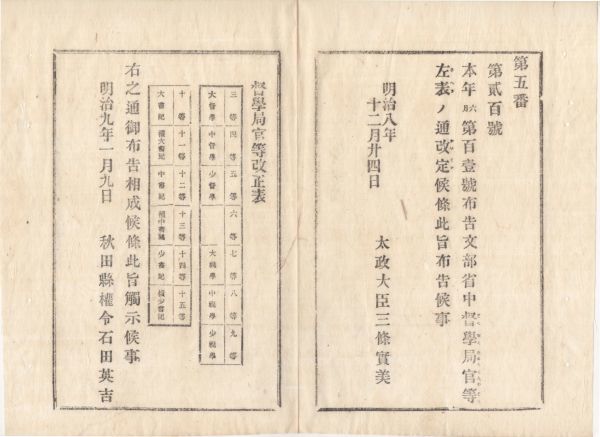 第五番
第貳百號
本年六月第百壹號布告文部省中督學局官等
左表ノ通改定候條此旨布告候事
明治八年
十二月廿四日
太政大臣三條實美
督學局官等改正表
三等 四等 五等 六等 七等 八等 九等
大督學 中督學 少督學 大視學 中視學 少視學
十等 十一等 十二等 十三等 十四等 十五等
大書記 權大書記 中書記 權中書記 少書記 權少書記
右之通御布告相成候條此旨觸示候事
明治九年一月九日
秋田縣權令石田英吉